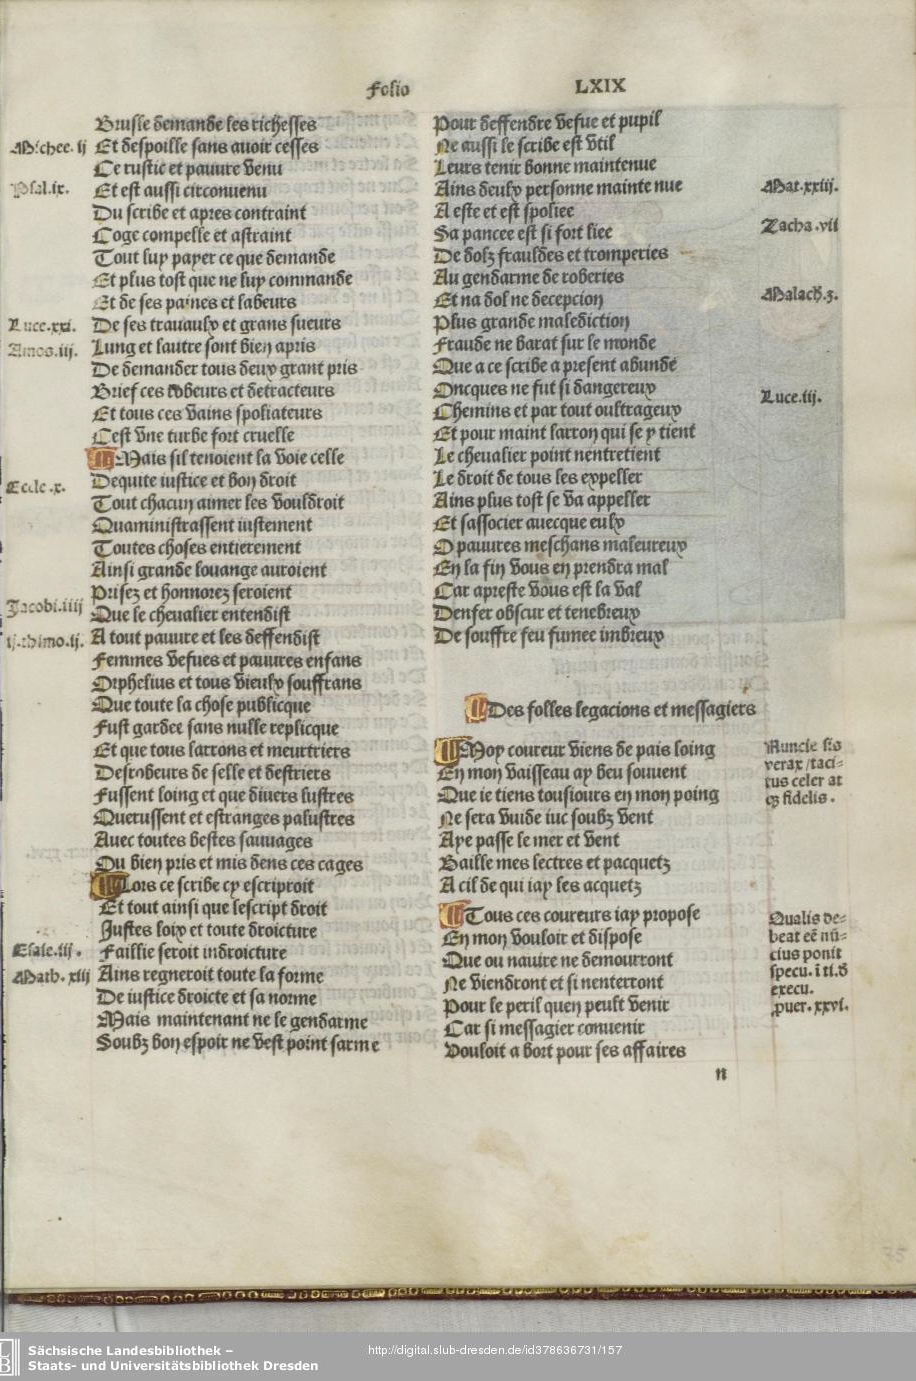 Folio LXIX
Brusle demande les richesses
Et despoille sans auoir cesses
Ce rustic et pauure venu
Et est aussi circonuenu
Du scribe et apres contraint
Coge compelle et astraint
Tout luy payer ce que demande
Et plus tost que ne luy commande
Et de ses paines et labeurs
De ses trauaulx et grans sueurs
Lung et lautre sont bien apris
De demander tous deux grant pris
Brief ces robeurs et detracteurs
Et tous ces vains spoliateurs
Cest vne turbe fort cruelle
Mais sil tenoient la voie celle
Dequite iustice et bon droit
Tout chacun aimer les vouldroit
Quaministrassent iustement
Toutes choses entierement
Ainsi grande louange auroient
Prisez et honnorez seroient
Que le cheualier entendist
A tout pauure et les deffendist
Femmes vefues et pauures enfans
Orphelins et tous vieulx souffrans
Que toute la chose publicque
Fust gardee sans nulle replicque
Et que tous larrons et meurtriers
Desrobeurs de selle et destriers
Fussent loing et que diuers lustres
Querussent et estranges palustres
Auec toutes bestes sauuages
Ou bien pris et mis dens ces cages
Lors ce scribe cy escriproit
Et tout ainsi que lescript droit
Justes loix et toute droicture
Faillie seroit indroicture
Ains regneroit toute la forme
De iustice droicte et sa norme
Mais maintenant ne le gendarme
Soubz bon espoir ne vest point sarme
Michee. ij
Psal.ix.
Luce.xxi.
Amos.iij.
Eccle.x.
Jacobi.iiij
ij.thimo.ij.
Esaie.iij.
Math. xiij
Pour deffendre vefue et pupil
Ne aussi le scribe est vtil
Leurs tenir bonne maintenue
Ains deulx personne mainte nue
A este et est spoliee
Sa pancee est si fort liee
De dolz frauldes et tromperies
Au gendarme de roberies
Et na dol ne decepcion
Plus grande malediction
Fraude ne barat sur le monde
Que a ce scribe a present abunde
Oncques ne fut si dangereux
Chemins et par tout oultrageux
Et pour maint larron qui se y tient
Le cheualier point nentretient
Le droit de tous les expeller
Ains plus tost se va appeller
Et sassocier auecque eulx
O pauures meschans maleureux
En la fin vous en prendra mal
Car apreste vous est la val
Denfer obscur et tenebreux
De souffre feu fumee imbreux
Mat.xxiij.
Zacha.vii
Malach.3.
Luce.iij.
Des folles legacions et messagiers
Moy coureur viens de pais loing
En mon vaisseau ay beu souuent
Que ie tiens tousiours en mon poing
Ne sera vuide iuc soubz vent
Aye passe le mer et vent
Baille mes lectres et pacquetz
A cil de qui iay les acquetz
Tous ces coureurs iay propose
En mon vouloir et dispose
Que ou nauire ne demourront
Ne viendront et si nenterront
Pour le peril quen peult venir
Car si messagier conuenir
Vouloit a bort pour ses affaires
Nuncie sis
verax / taci-
tus celer at
qz fidelis.
Qualis de-
beat eē nū-
cius ponit
specu. ī ti. d
execu.
puer. xxvi.
n
75
Sächsische Landesbibliothek –
Staats- und Universitätsbibliothek Dresden
http://digital.slub-dresden.de/id378636731/157